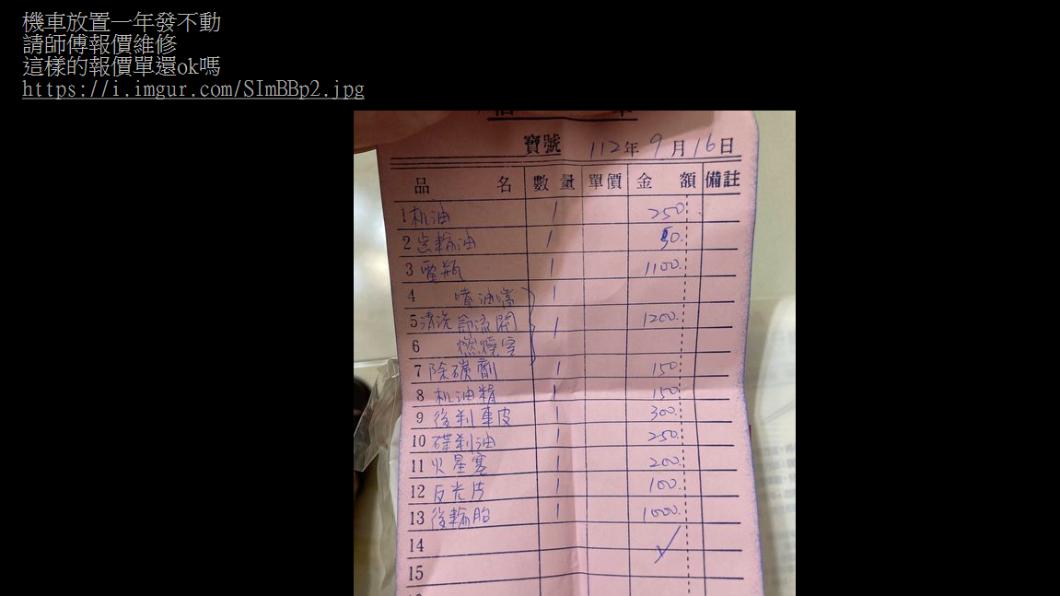 機車放置一年發不動
請師傅報價維修
這樣的報價單還ok嗎
https://i.imgur.com/SImBBp2.jpg
寶號 112年9月16日
品名 數量 單價 金額 備註
1 机油 1 250
2 齿輪油 1 50.
3 電瓶 1 1100.
4 噴油嘴 1
5 清洗 節流閥 1 1200.
6 燃燒室
7 除碳劑 1 150
8 机油精 1 150
9 後刹車皮 1 300.
10 碟刹油 1 250.
11 火星塞 1 200.
12 反光片 1 100.
13 後輪胎 1 1000.
14
15